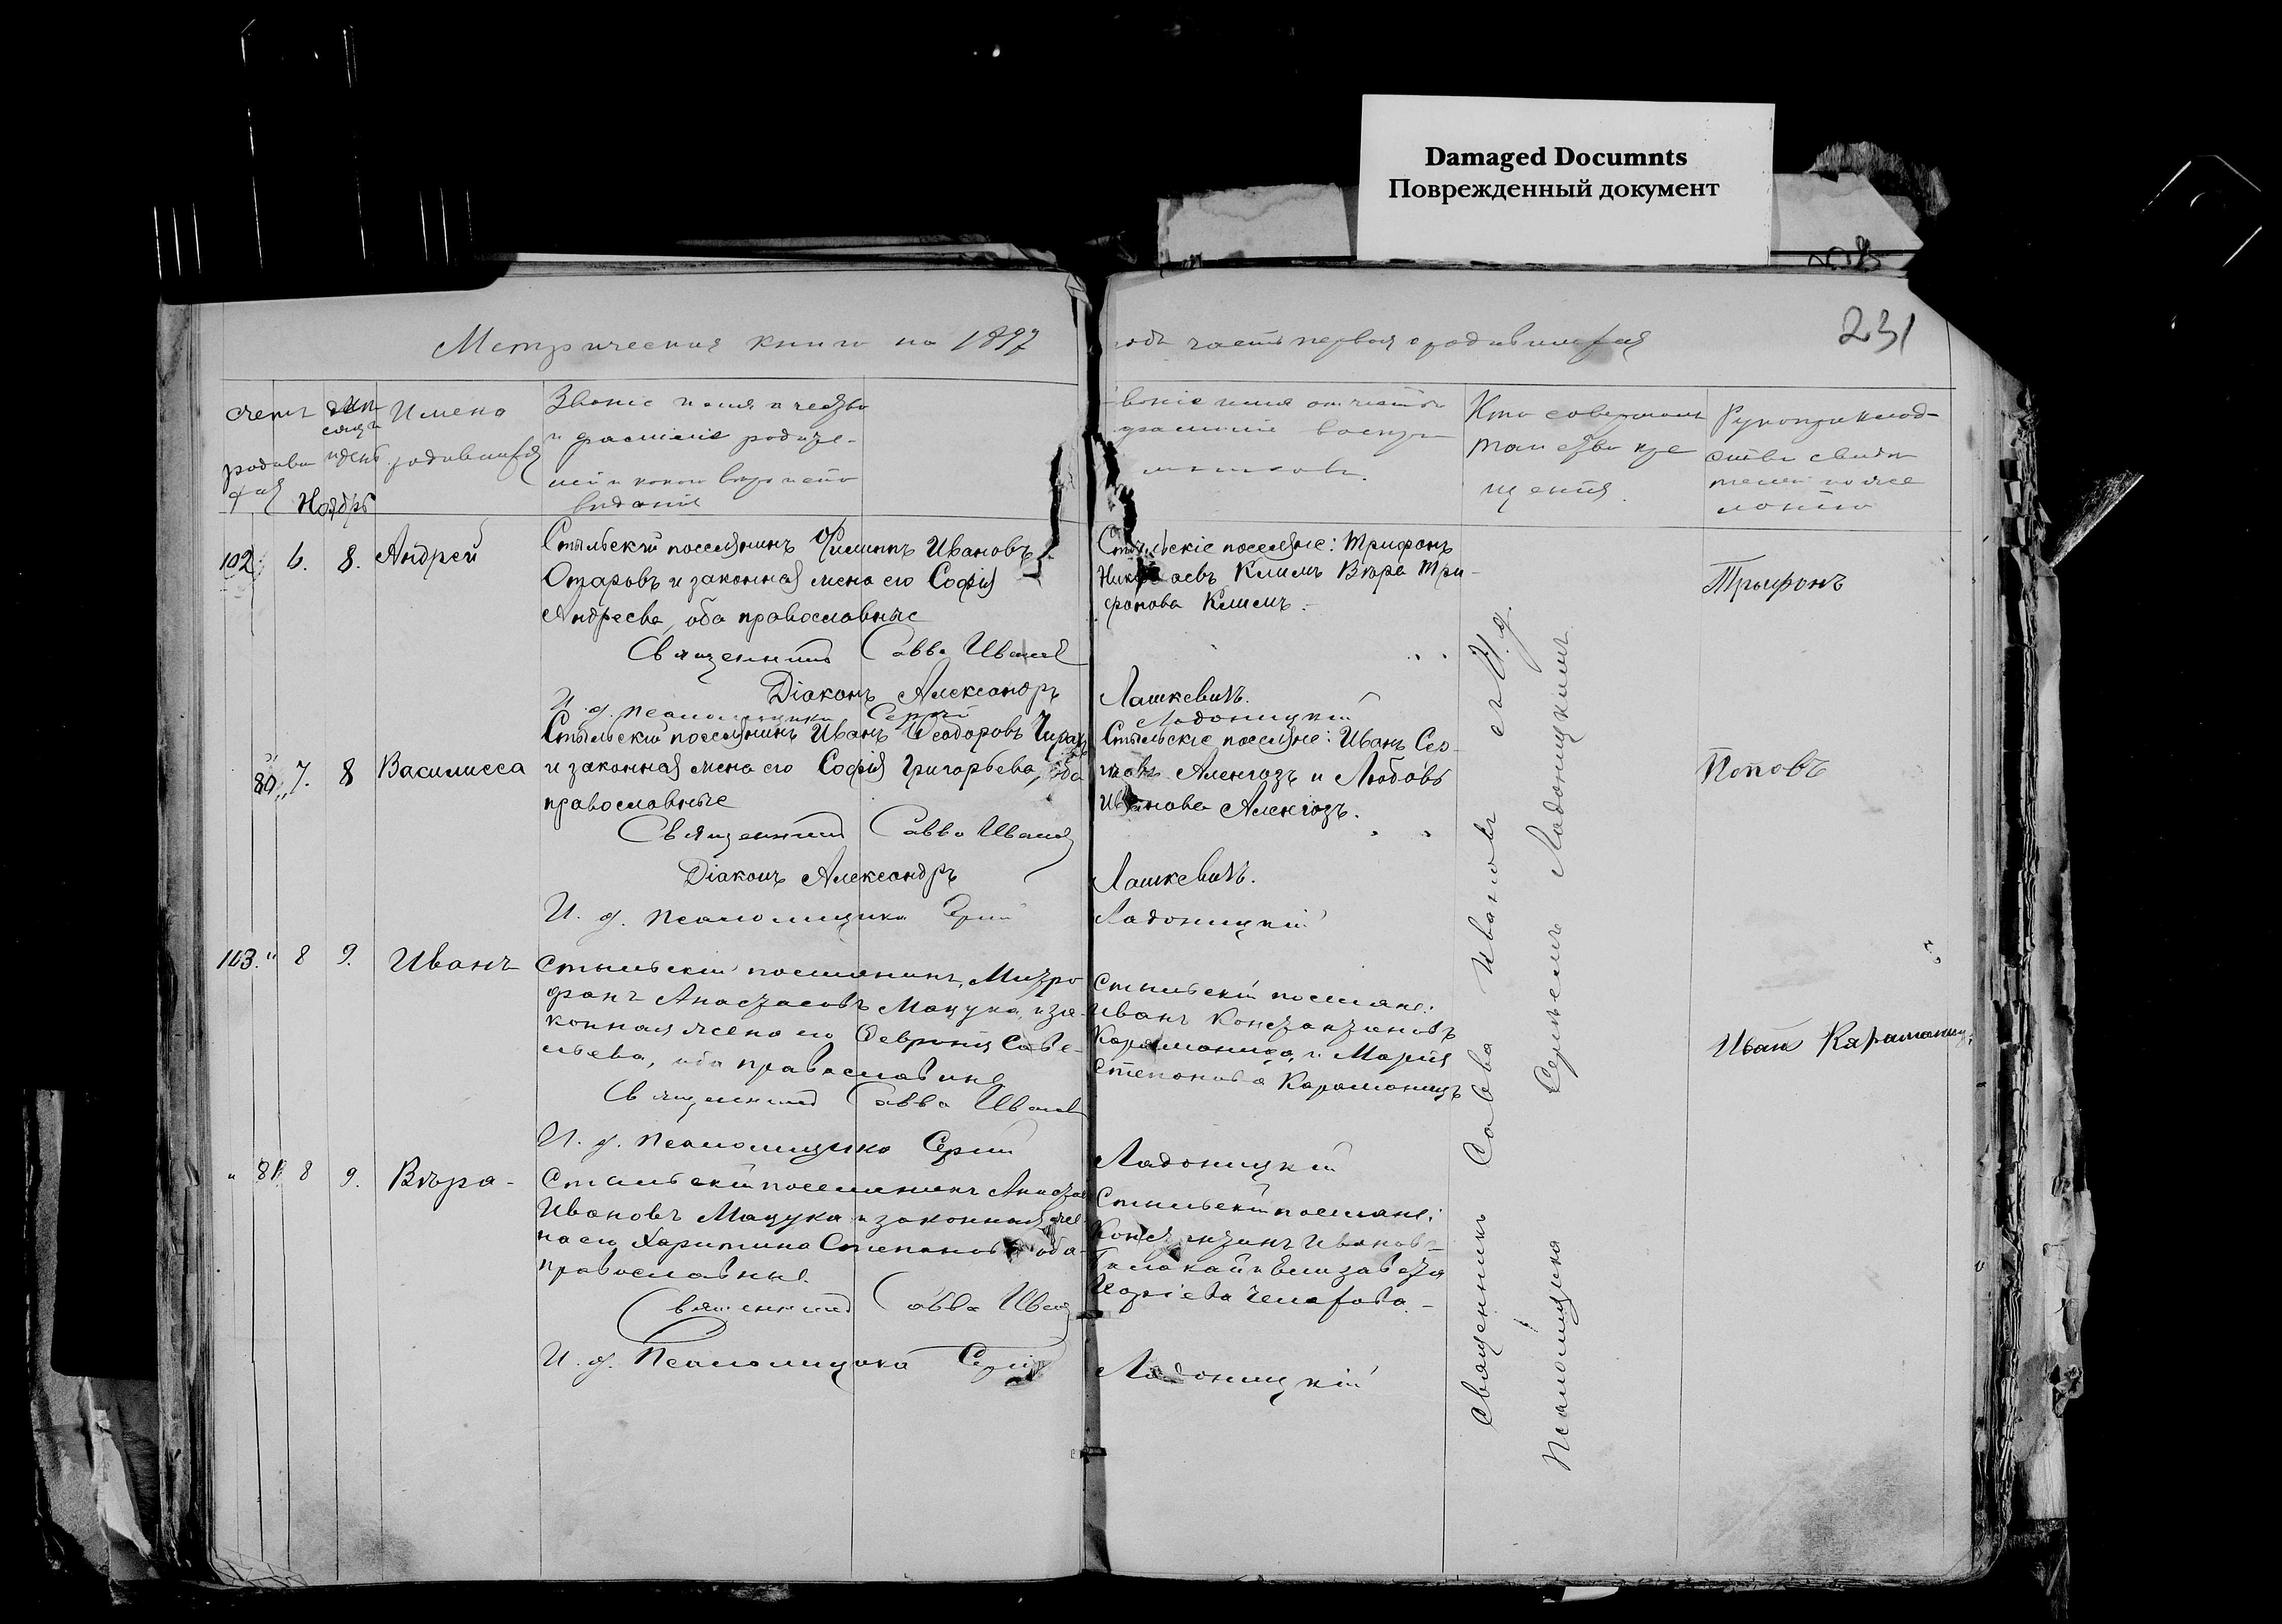 Damaged Documnts
Поврежденный документ
231
Метрическая книга на 1897
годъ часть первая о родившихся
Счетъ
родивш
ихся
мѣ-
сяцъ
и день
Ноябрь
Имена
родившихся
Званіе имя отчество
и фамилія родите-
лей и какого вѣроиспо
вѣданія
Званіе имя отчество
фамилія воспрі
емниковъ.
Кто совершалъ
таинство кре
щенія.
Рукоприклад-
ство свидѣ
телей по же
ланію
102. 6. 8. Андрей
Стыльскій поселянинъ Филиппъ Ивановъ
Отаровъ и законная жена его Софія
Андреева, оба православные
Священникъ Савва Ивановъ
Діаконъ Александръ
И. д. псаломщика Сергій
Стыльскіе поселяне: Трифонъ
Николаевъ Клиmъ Вѣра Три-
фонова Климъ.
Лашкевичъ.
Ладоницкій
Трыфонъ
80 7. 8 Василисса
Стыльскій поселянинъ Иванъ Ѳеодоровъ Чирахъ
и законная жена его Софія Григорьева, оба
православные
Священникъ Савва Ивановъ
Діаконъ Александръ
И. д. псаломщика Сергій
Стыльскіе поселяне: Иванъ
Аленгозъ и Любовь
Иванова Аленгозъ.
Лашкевичъ.
Ладоницкій
Поповъ
103. " 8 9. Иванъ
Стыльскій поселянинъ, Митро
фанъ Анастасовъ Мацука и за-
конная жена его Ѳевронія Саве-
льева, оба православные
Священникъ Савва Ивановъ
И. д. псаломщика Сергій
Стыльскій поселяне:
Иванъ Константиновъ
Караманица, и Марія
Степанова Караманицъ
Ладоницкій
Иванъ Караманиц
" 81 8 9. Вѣра -
Стыльскій поселянинъ Анастас
Ивановъ Мацука и законная же-
на его Харитина Степанова оба
православные.
Священникъ Савва Ивановъ
И. д. Псаломщика Сергій
Стыльскій поселяне:
Константинъ Ивановъ
и Елизавета
Ладоницкій
Священникъ Савва Ивановъ и И. д.
Псаломщика Сергѣемъ Ладоницкимъ